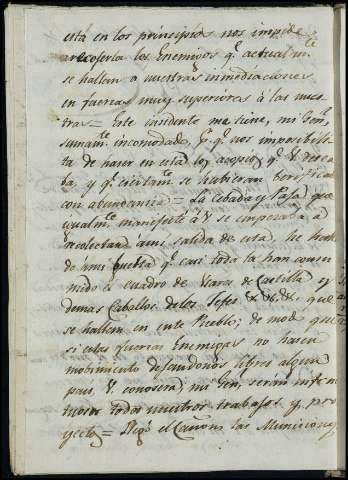 está en los principios nos impide
arecojerla los Enemigos q.e actualm.te
se hallan a nuestras inmediaciones
en fuerzas muy superiores á las nues
tras = Este incidente me tiene, mi Gen.l
sumam.te incomodado, p.r q.e nos imposibili
ta de hacer en esta los acopios q.e V. desea
ba, y q.e ciertam.te se hubieran berifica
con abundancia = La cebada y Paja que
igualm.te manifesté á V. se empezaba á
acolectar a mi salida de esta, he halla
do a mi buelta q.e casi toda la han consu
mido el cuadro de Usares de Castilla y
demas Caballos de los Jefes &c. &c. &c. que
se hallan en este Pueblo; de modo que
si estas fuerzas Enemigas no hacen
mobimiento dejandonos libres algun
pais, V. conoserá, mi Gen.l, serán infruc
tuosos todos nuestros trabajos y pro
yectos = Llegó el Cañon, las Municiones